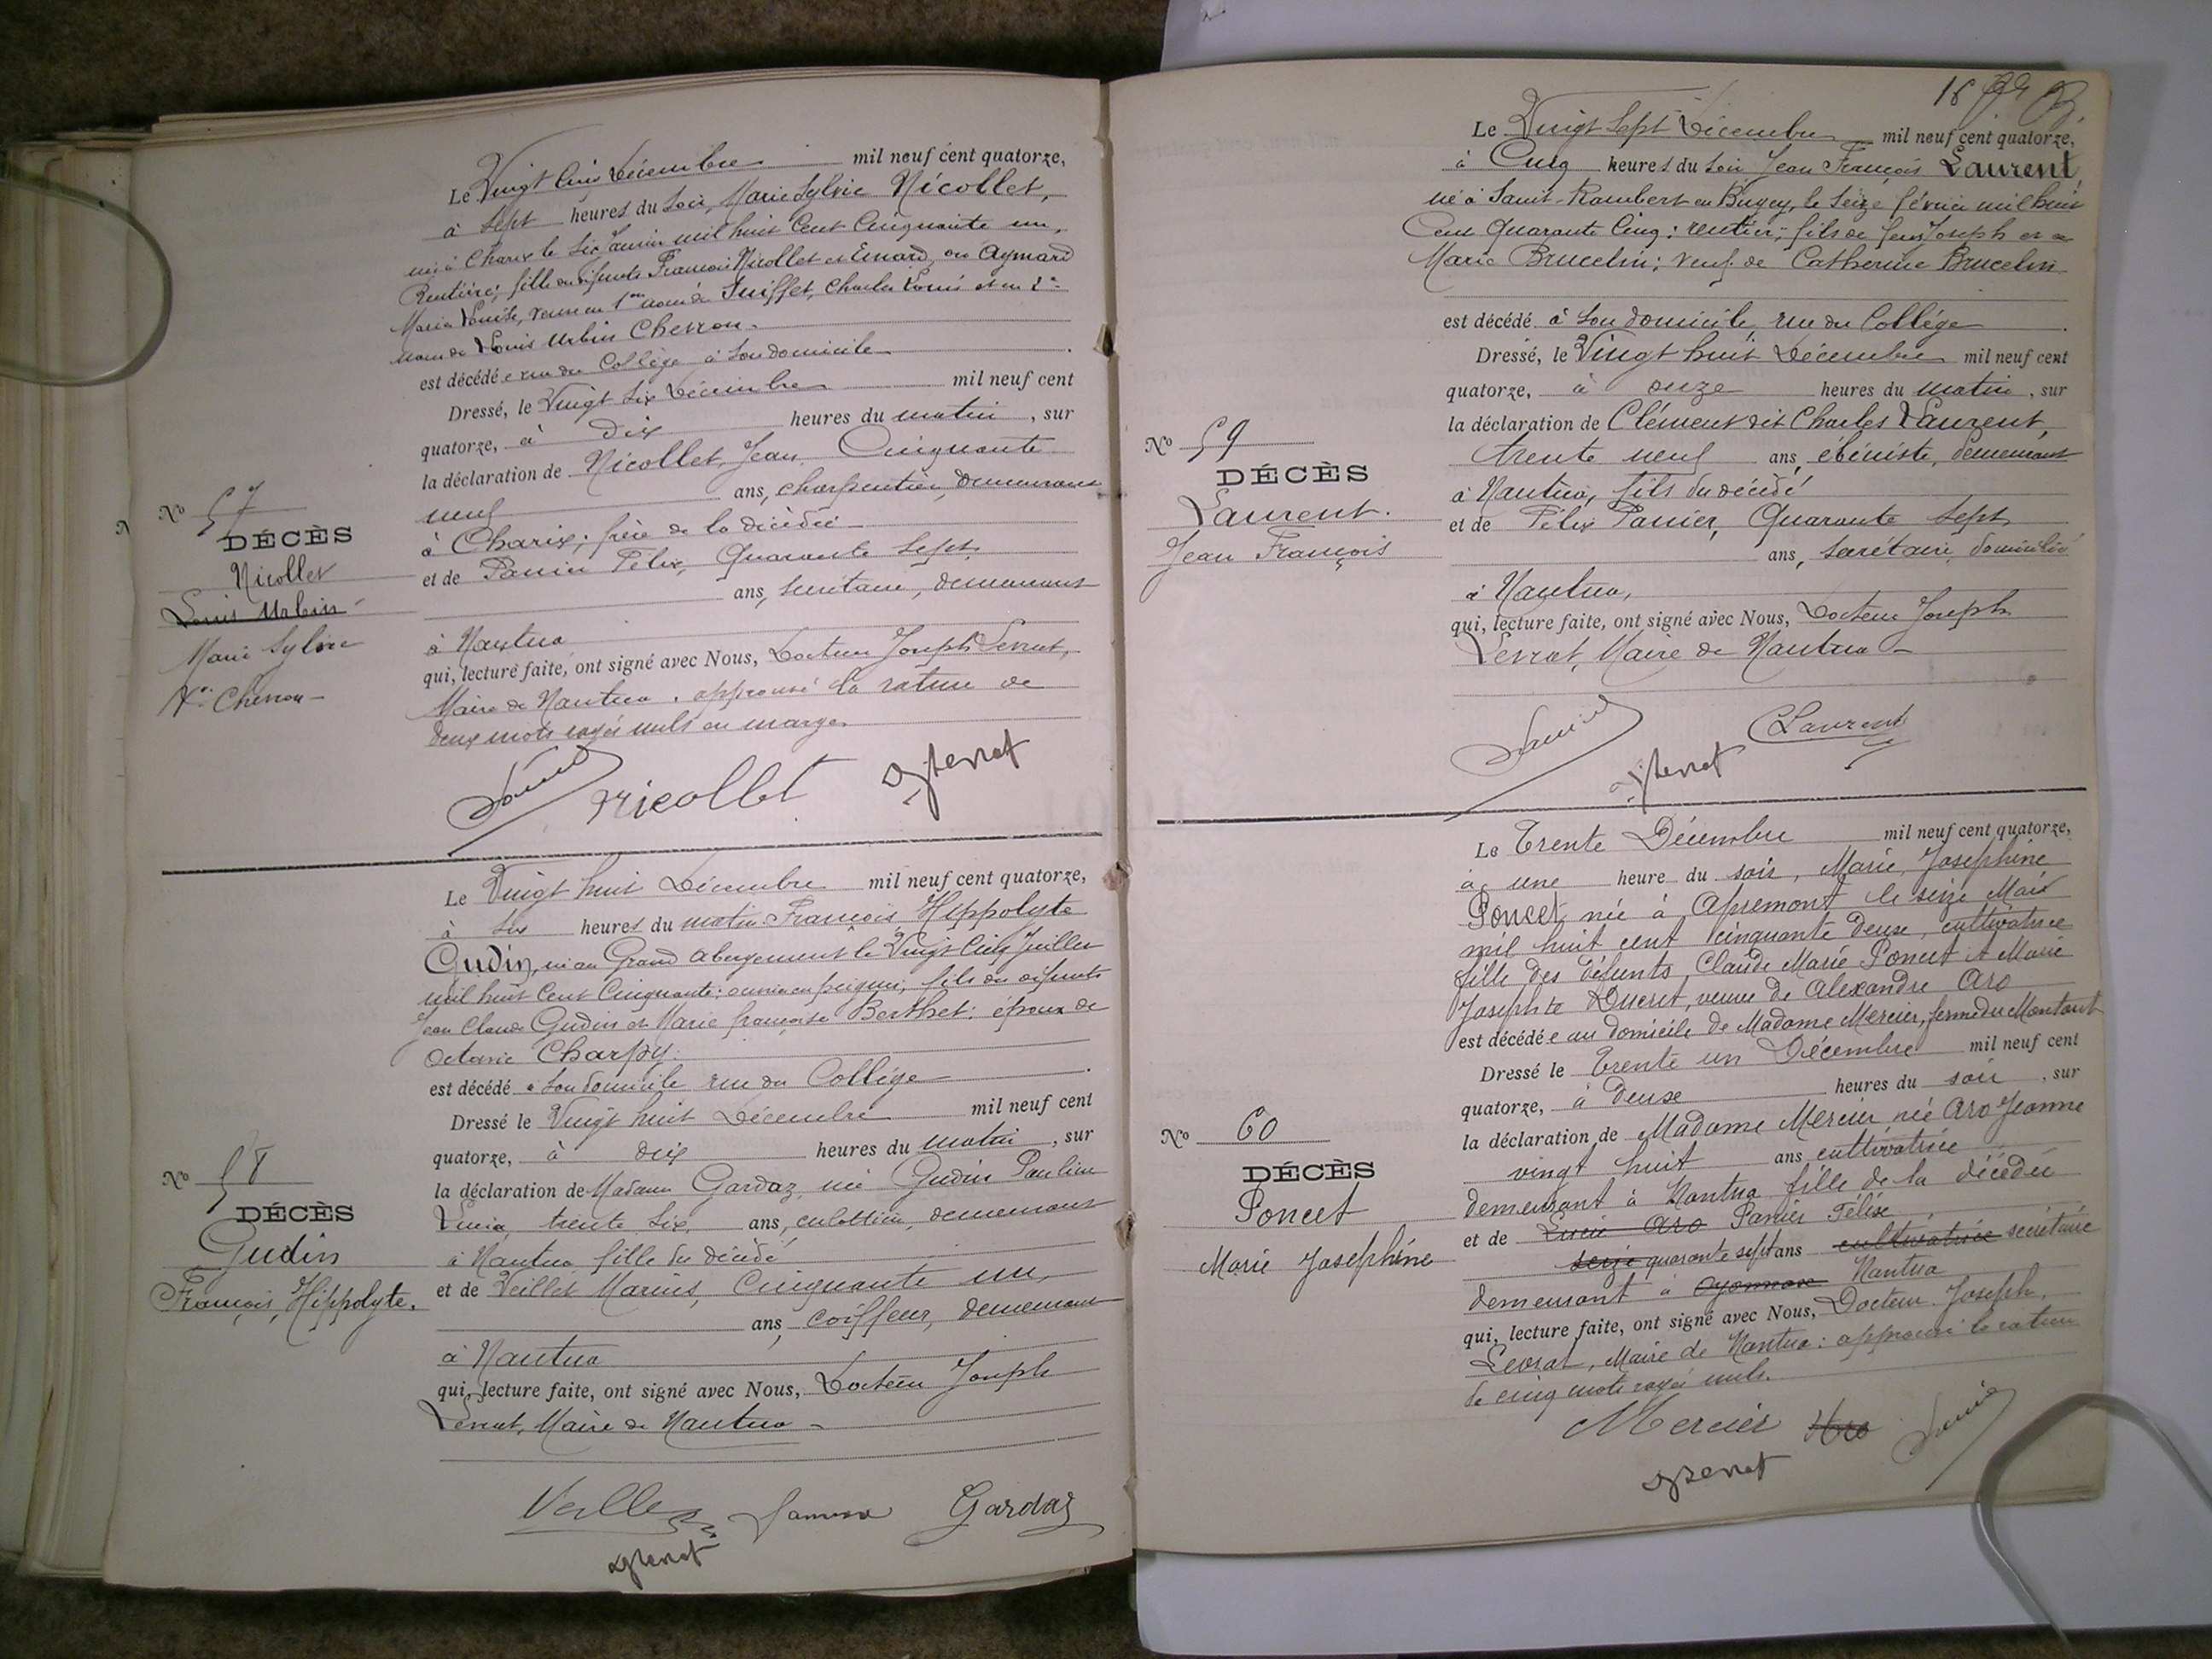 Le Vingt Cinq Décembre mil neuf cent quatorze,
à Sept heures du Soir, Marie Sylvie Nicollet,
née à Charix le Six Janvier mil huit Cent Cinquante un,
Rentière; fille des défunts François Nicollet et Emard, ou Aymard
Maria Louise, veuve en 1res noces de Suiffet, Charles Louis et en 2e
noces de Louis Urbin Chevron.
est décédée rue du Collège à son domicile
Dressé, le Vingt Six Décembre mil neuf cent
quatorze, à Dix heures du matin, sur
la déclaration de Nicollet, Jean, Cinquante
neuf ans, charpentier, demeurant
à Charix; frère de la décédée
et de Panier Félix, Quarante Sept
ans, secrétaire, demeurant
à Nantua
qui, lecture faite, ont signé avec Nous, Docteur Joseph Levrat,
Maire de Nantua. approuvé la rature de
deux mots rayés nuls en marge.
Nicollet Levrat
No 57
DÉCÈS
Nicollet
Louis Urbin
Marie Sylvie
Ve Chevron
Le Vingt huit Décembre mil neuf cent quatorze,
à Six heures du matin François, Hippolyte
Gudin, né au Grand abergement le Vingt Cinq Juillet
mil huit Cent Cinquante; ouvrier en peignes; fils des défunts
Jean Claude Gudin et Marie françoise Berthet: époux de
Octavie Charpy.
est décédé à son domicile rue du Collège
Dressé le Vingt huit Décembre mil neuf cent
quatorze, à dix heures du matin, sur
la déclaration de Madame Gardaz, née Gudin Pauline
Lucia, trente Six, ans, culottière, demeurant
à Nantua, fille du décédé
et de Veillet Marius, Cinquante un,
ans, coiffeur, demeurant
à Nantua
qui, lecture faite, ont signé avec Nous, Docteur Joseph
Levrat, Maire de Nantua
Gardaz
Levrat
No 58
DÉCÈS
Gudin
François, Hippolyte.
Le Vingt Sept Décembre mil neuf cent quatorze,
à Cinq heures du Soir Jean François Laurent
né à Saint-Rambert en Bugey, le Seize février mil huit
Cent Quarante Cinq: rentier; fils de feus Joseph et de
Marie Brucelin; veuf de Catherine Brucelin
est décédé à son domicile, rue du Collège
Dressé, le Vingt huit Décembre mil neuf cent
quatorze, à onze heures du matin, sur
la déclaration de Clément dit Charles Laurent,
trente neuf ans, ébéniste, demeurant
à Nantua, fils du décédé
et de Félix Panier, Quarante Sept
ans, secrétaire, domicilié
à Nantua,
qui, lecture faite, ont signé avec Nous, Docteur Joseph
Levrat, Maire de Nantua
CLaurent
Levrat
No 59
DÉCÈS
Laurent.
Jean François
Le Trente Décembre mil neuf cent quatorze,
à une heure du soir, Marie, Joséphine
Poncet, née à Apremont le seize Mai
mil huit cent cinquante deux, cultivatrice
fille des défunts, Claude Marie Poncet et Marie
Josephte Ducret, veuve de Alexandre Aro
est décédée au domicile de Madame Mercier, ferme du Montant
Dressé le Trente un Décembre mil neuf cent
quatorze, à Deux heures du soir, sur
la déclaration de Madame Mercier née Aro Jeanne
vingt huit ans cultivatrice
demeurant à Nantua fille de la décédée
et de Lucie Aro Panier Félix
seize quarante sept ans cultivatrice secrétaire
demeurant à Oyonnax Nantua
qui, lecture faite, ont signé avec Nous, Docteur Joseph,
Levrat, Maire de Nantua: approuvé la rature
de cinq mots rayés nuls.
Mercier Aro
Levrat
No 60
DÉCÈS
Poncet
Marie Joséphine